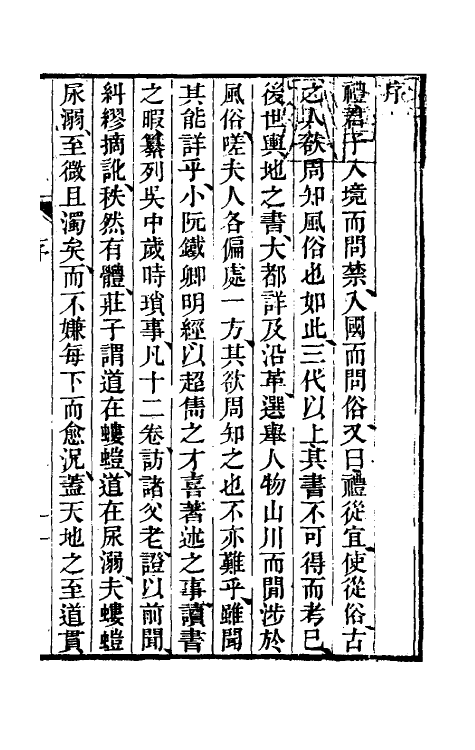 序
禮君子入境而問禁入國而問俗又曰禮從宜使從俗古
之人欲周知風俗也如此三代以上其書不可得而考已
後世輿地之書大都詳及沿革選舉人物山川而閒涉於
風俗嗟夫人各偏處一方其欲周知之也不亦難乎雖聞
其能詳乎小阮鐵卿明經以超儁之才喜著述之事讀書
之暇纂列吳中歲時瑣事凡十二卷訪諸父老證以前聞
糾繆摘訛秩然有體莊子謂道在螻螘道在尿溺夫螻螘
尿溺至微且濁矣而不嫌每下而愈況蓋天地之至道貫
序
一